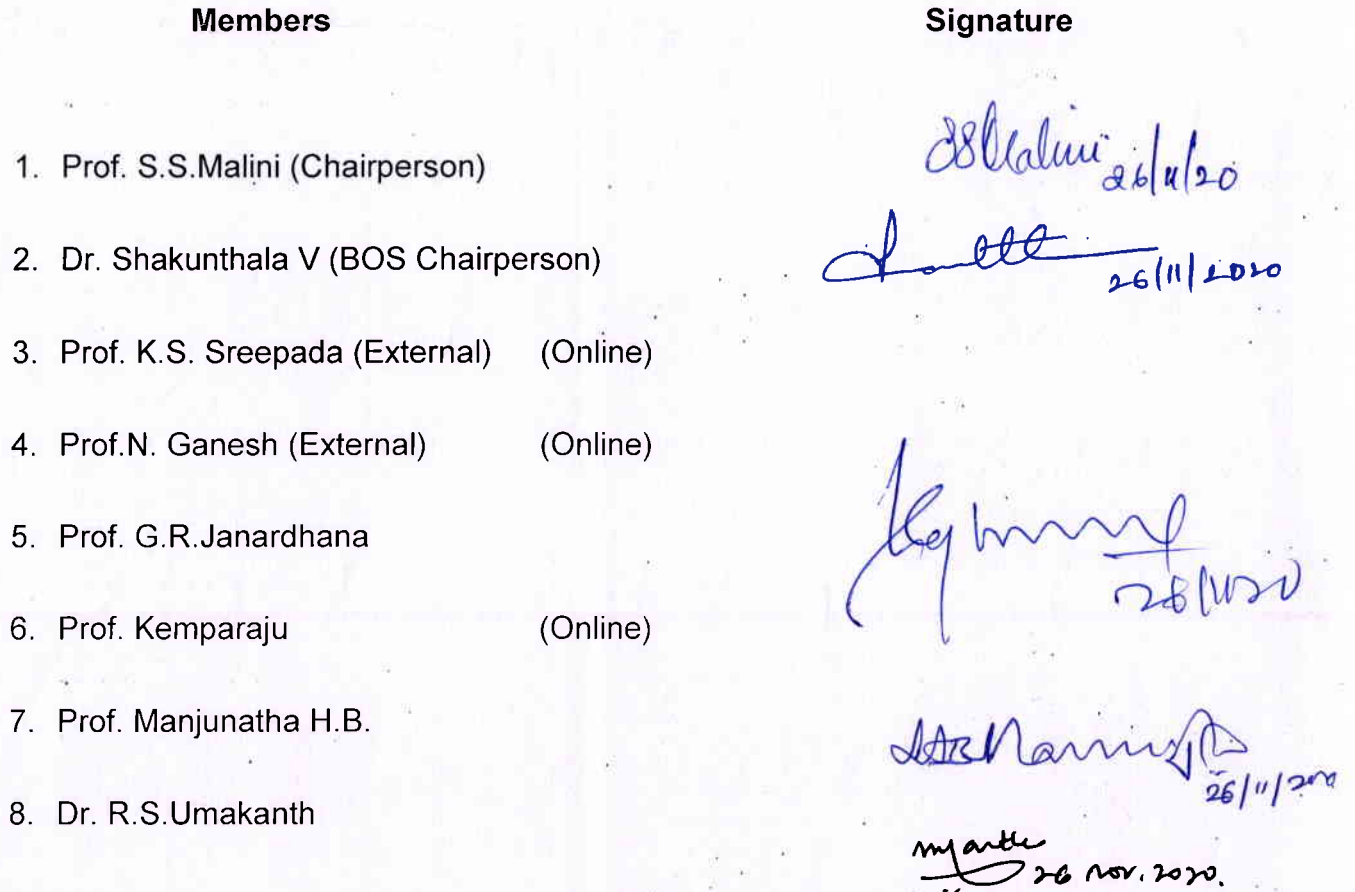 Members Signature
1. Prof. S.S.Malini (Chairperson)
SSMalini 26/11/20
2. Dr. Shakunthala V (BOS Chairperson)
26/11/2020
3. Prof. K.S. Sreepada (External) (Online)
4. Prof.N. Ganesh (External) (Online)
5. Prof. G.R.Janardhana
26/11/20
6. Prof. Kemparaju (Online)
7. Prof. Manjunatha H.B.
26/11/2020
8. Dr. R.S.Umakanth
26 Nov. 2020.